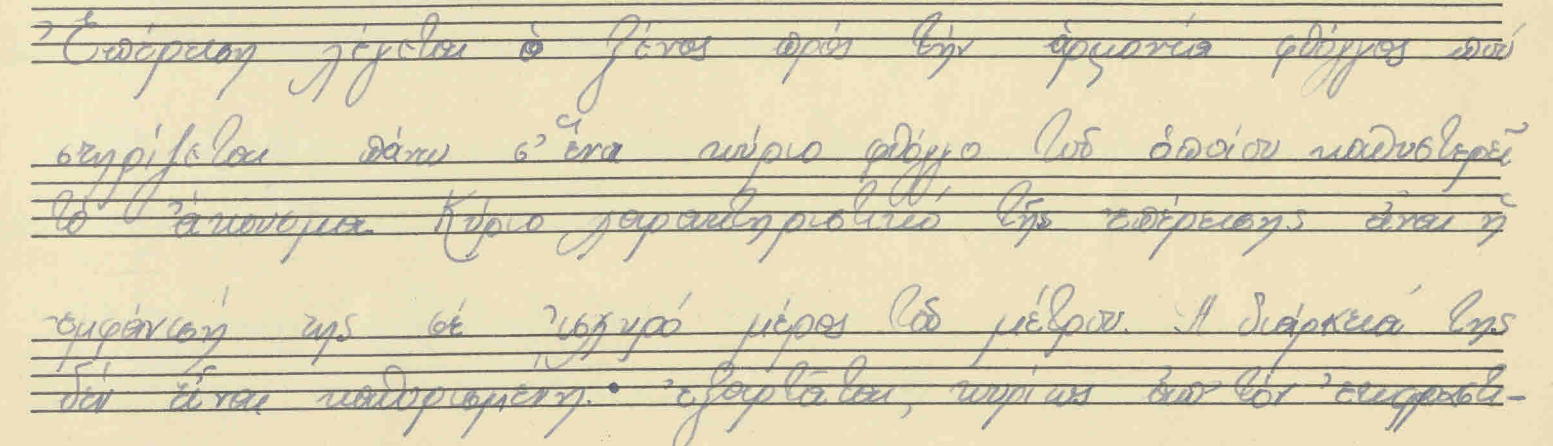 Ἐπέρειση λέγεται ὁ ξένος πρός τήν ἁρμονία φθόγγος πού
στηρίζεται πάνω σ' ἕνα κύριο φθόγγο τοῦ ὁποίου καθυστερεῖ
τό ἄκουσμα. Κύριο χαρακτηριστικό τῆς ἐπέρεισης εἶναι ἡ
ἐμφάνισή της σέ ἰσχυρό μέρος τοῦ μέτρου. Ἡ διάρκειά της
δέν εἶναι καθορισμένη· ἐξαρτᾶται, κυρίως ἀπό τόν ἐκφραστι-